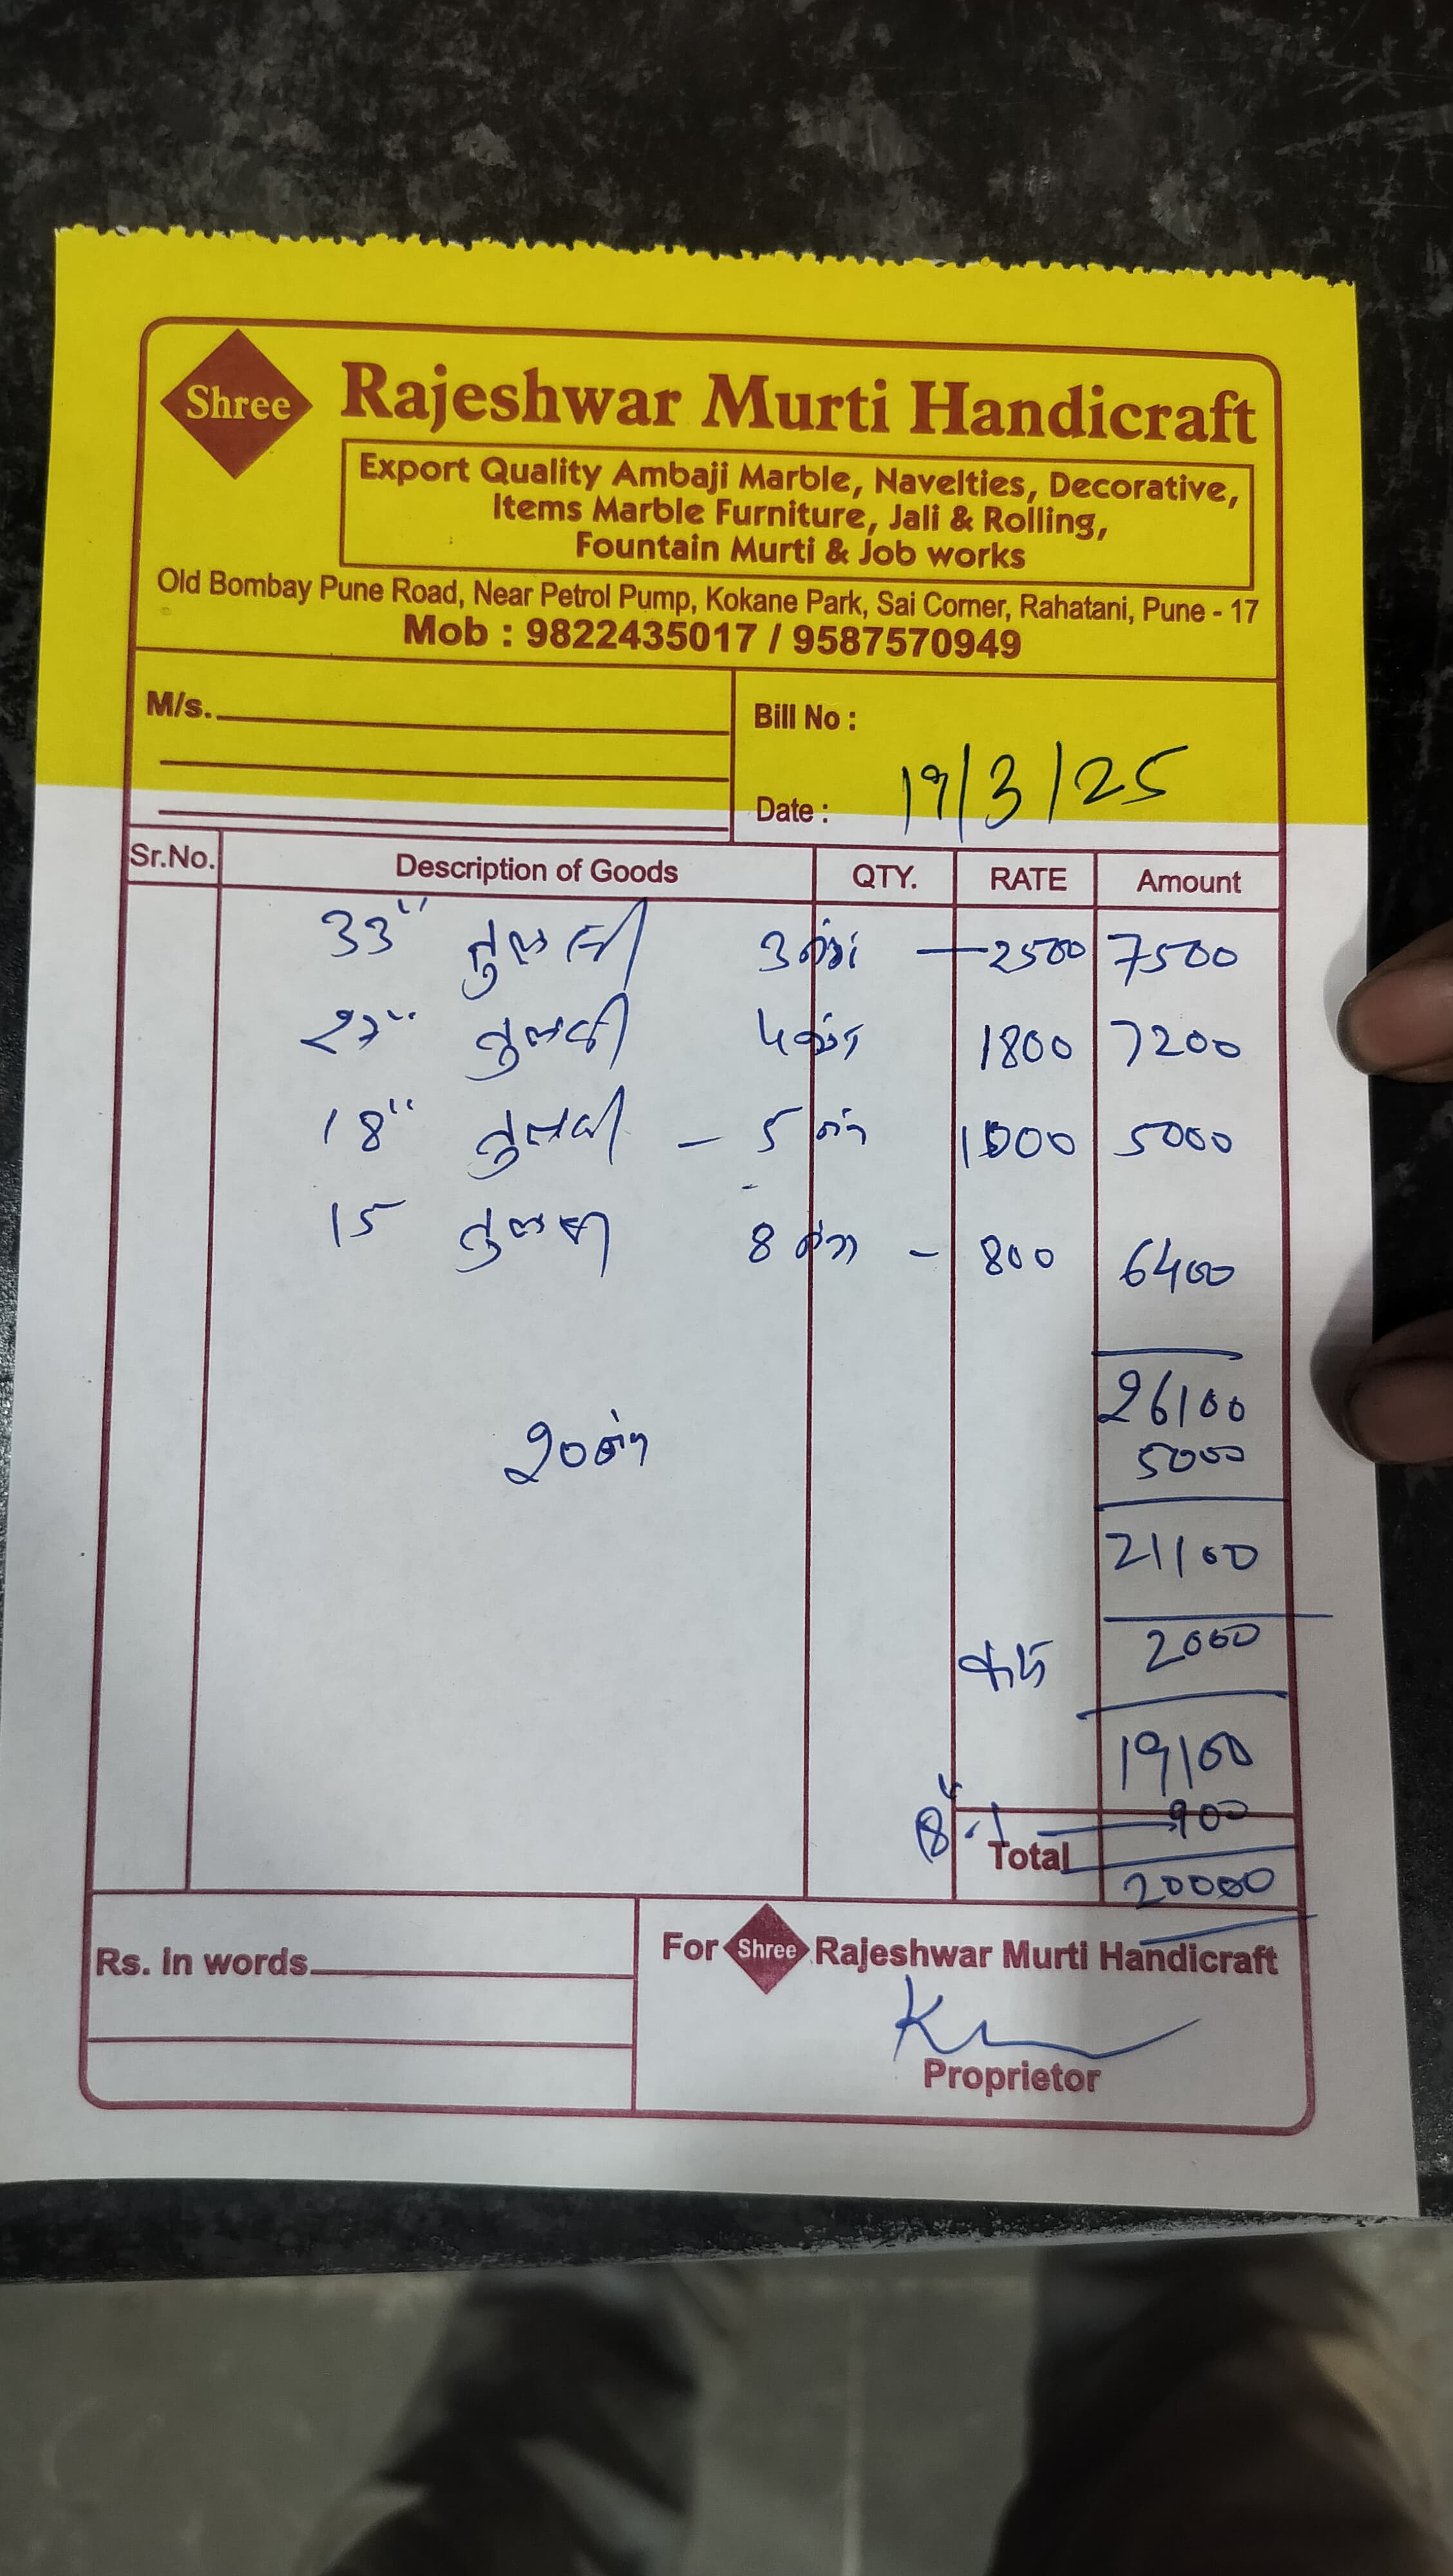 Shree Rajeshwar Murti Handicraft
Export Quality Ambaji Marble, Navelties, Decorative,
Items Marble Furniture, Jali & Rolling,
Fountain Murti & Job works
Old Bombay Pune Road, Near Petrol Pump, Kokane Park, Sai Corner, Rahatani, Pune - 17
Mob : 9822435017 / 9587570949
M/s.
Bill No :
Date : 19/3/25
Sr.No. Description of Goods QTY. RATE Amount
33" तुलसी 3 नंग — 2500 7500
27" तुलसी 4 नंग 1800 7200
18" तुलसी – 5 नंग 1000 5000
15 तुलसी 8 नंग – 800 6400
26100
20 नंग
5000
21100
2000
19100
900
Total
20000
Rs. in words
For Shree Rajeshwar Murti Handicraft
Proprietor